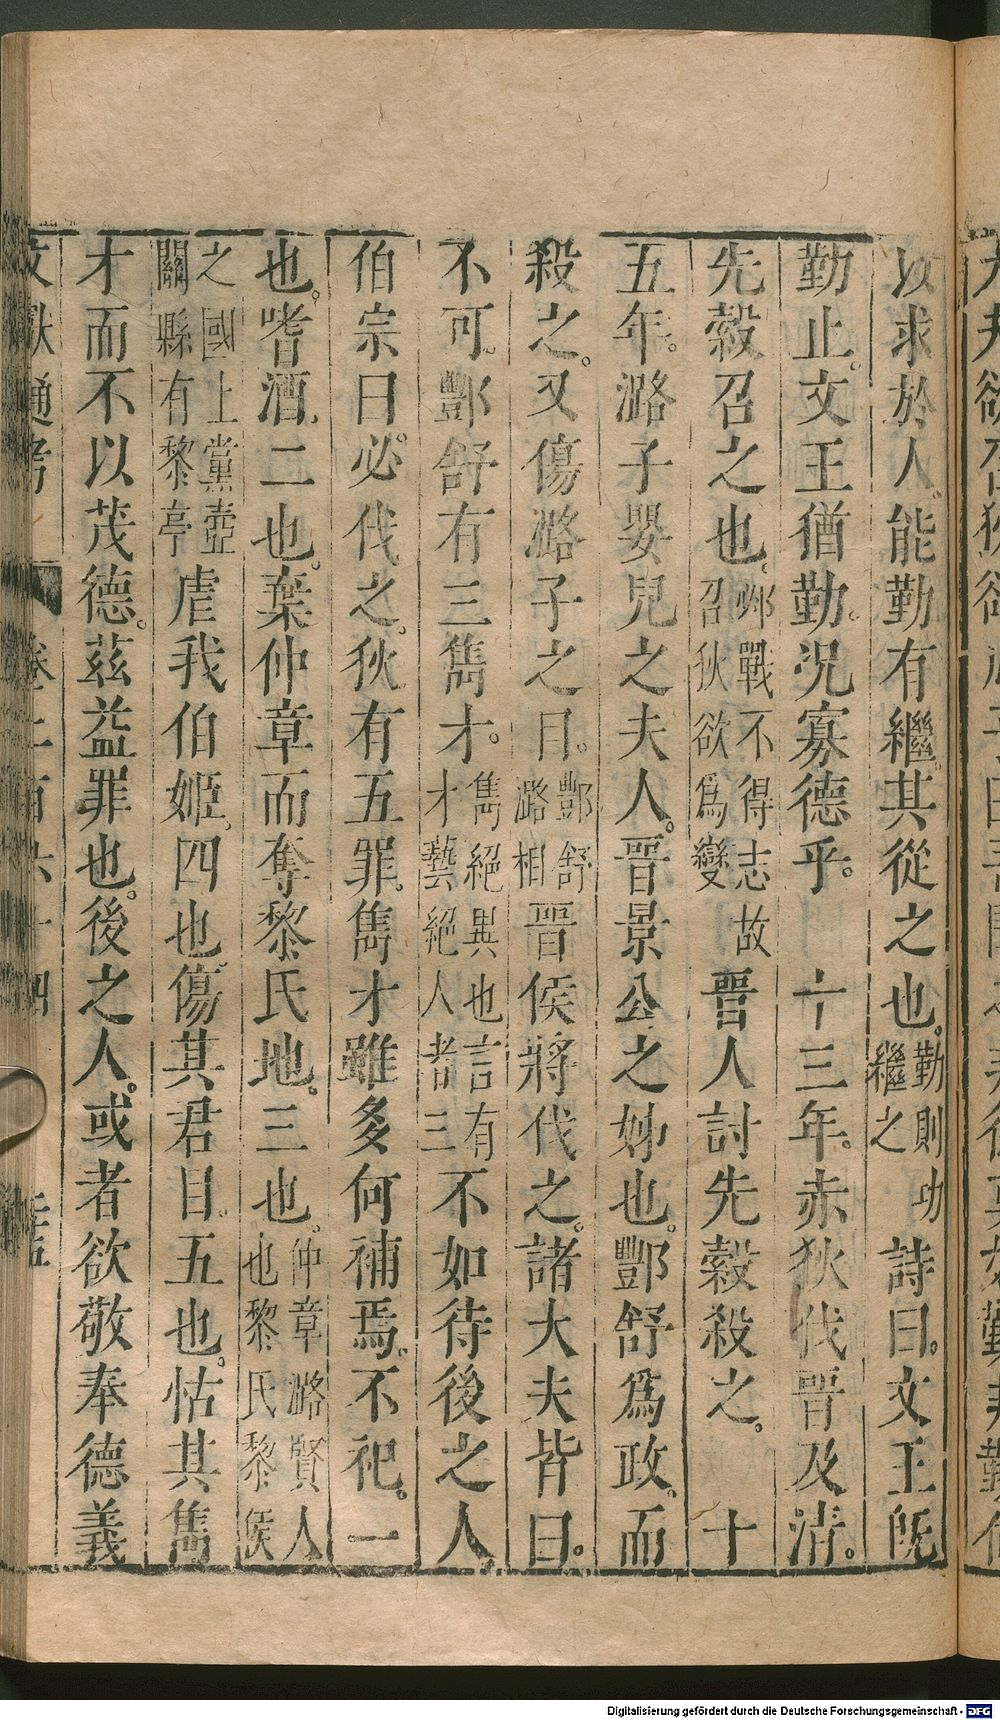 以求於人。能勤有繼。其從之也。勤則功繼之詩曰。文王旣
勤止。文王猶勤。況寡德乎。十三年。赤狄伐晉及清。
先縠召之也。邲戰不得志故召狄欲爲變晉人討先縠殺之。十
五年。潞子嬰兒之夫人。晉景公之姊也。酆舒爲政。而
殺之。又傷潞子之目。酆舒潞相晉侯將伐之。諸大夫皆曰。
不可。酆舒有三雋才。雋絕異也言有才藝絕人者三不如待後之人
伯宗曰。必伐之。狄有五罪。雋才雖多何補焉。不祀。一
也。嗜酒。二也。棄仲章而奪黎氏地。三也。仲章潞賢人也黎氏黎侯
之國上黨壺關縣有黎亭虐我伯姬。四也。傷其君目。五也。怙其雋
才而不以茂德。茲益罪也。後之人。或者欲敬奉德義
文獻通考
Digitalisierung gefördert durch die Deutsche Forschungsgemeinschaft - DFG